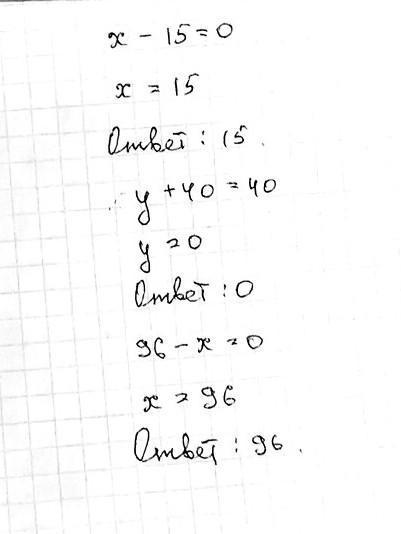 x - 15 = 0
x = 15
Ответ : 15.
y + 40 = 40
y = 0
Ответ : 0
96 - x = 0
x = 96
Ответ : 96.